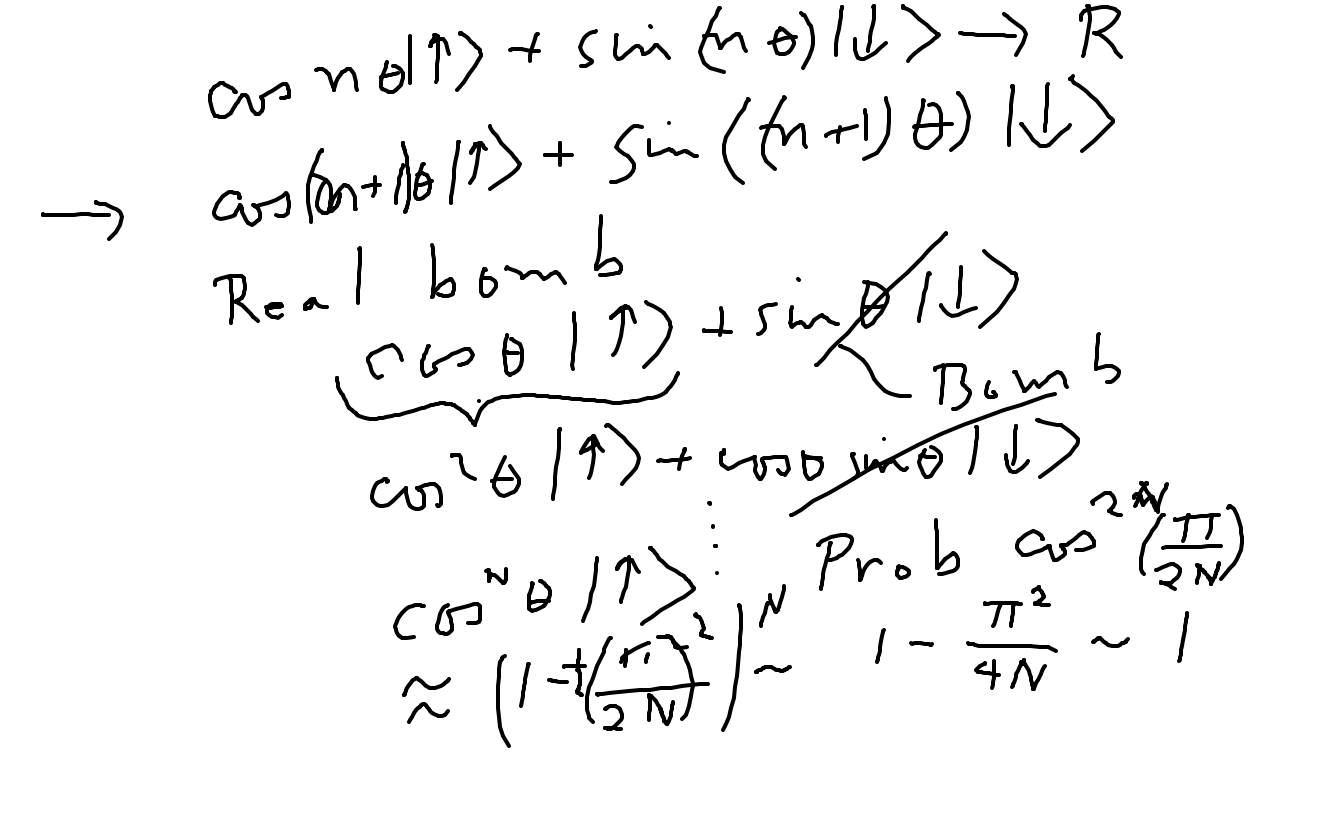 cos nθ|↑⟩ + sin(nθ)|↓⟩ → R
→ cos(n+1)θ|↑⟩ + sin((n+1)θ)|↓⟩
Real bomb
cos θ |↑⟩ + sin θ |↓⟩
Bomb
cos²θ |↑⟩ + cosθ sinθ |↓⟩
⋮
cosᴺθ |↑⟩ Prob cos²ᴺ(π/2N)
≈ (1 - ½(π/2N)²)ᴺ ~ 1 - π²/4N ~ 1